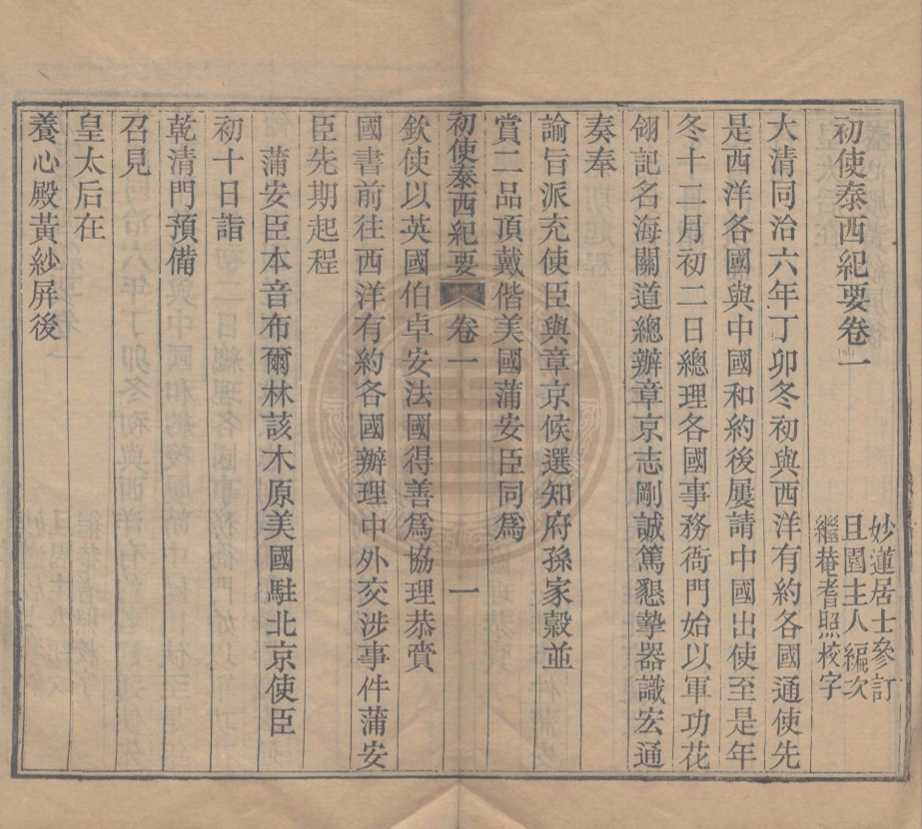 初使泰西紀要卷一
妙蓮居士參訂
且園主人編次
繼菴耆照校字
大清同治六年丁卯冬初與西洋有約各國通使先
是西洋各國與中國和約後屢請中國出使至是年
冬十二月初二日總理各國事務衙門始以軍功花
翎記名海關道總辦章京志剛誠篤懇摯器識宏通
奏奉
諭旨派充使臣與章京候選知府孫家穀並
賞二品頂戴偕美國蒲安臣同爲
初使泰西紀要 卷一 一
欽使以英國伯卓安法國得善爲協理恭賫
國書前往西洋有約各國辦理中外交涉事件蒲安
臣先期起程
蒲安臣本音布爾林該木原美國駐北京使臣
初十日詣
乾清門預備
召見
皇太后在
養心殿黃紗屏後